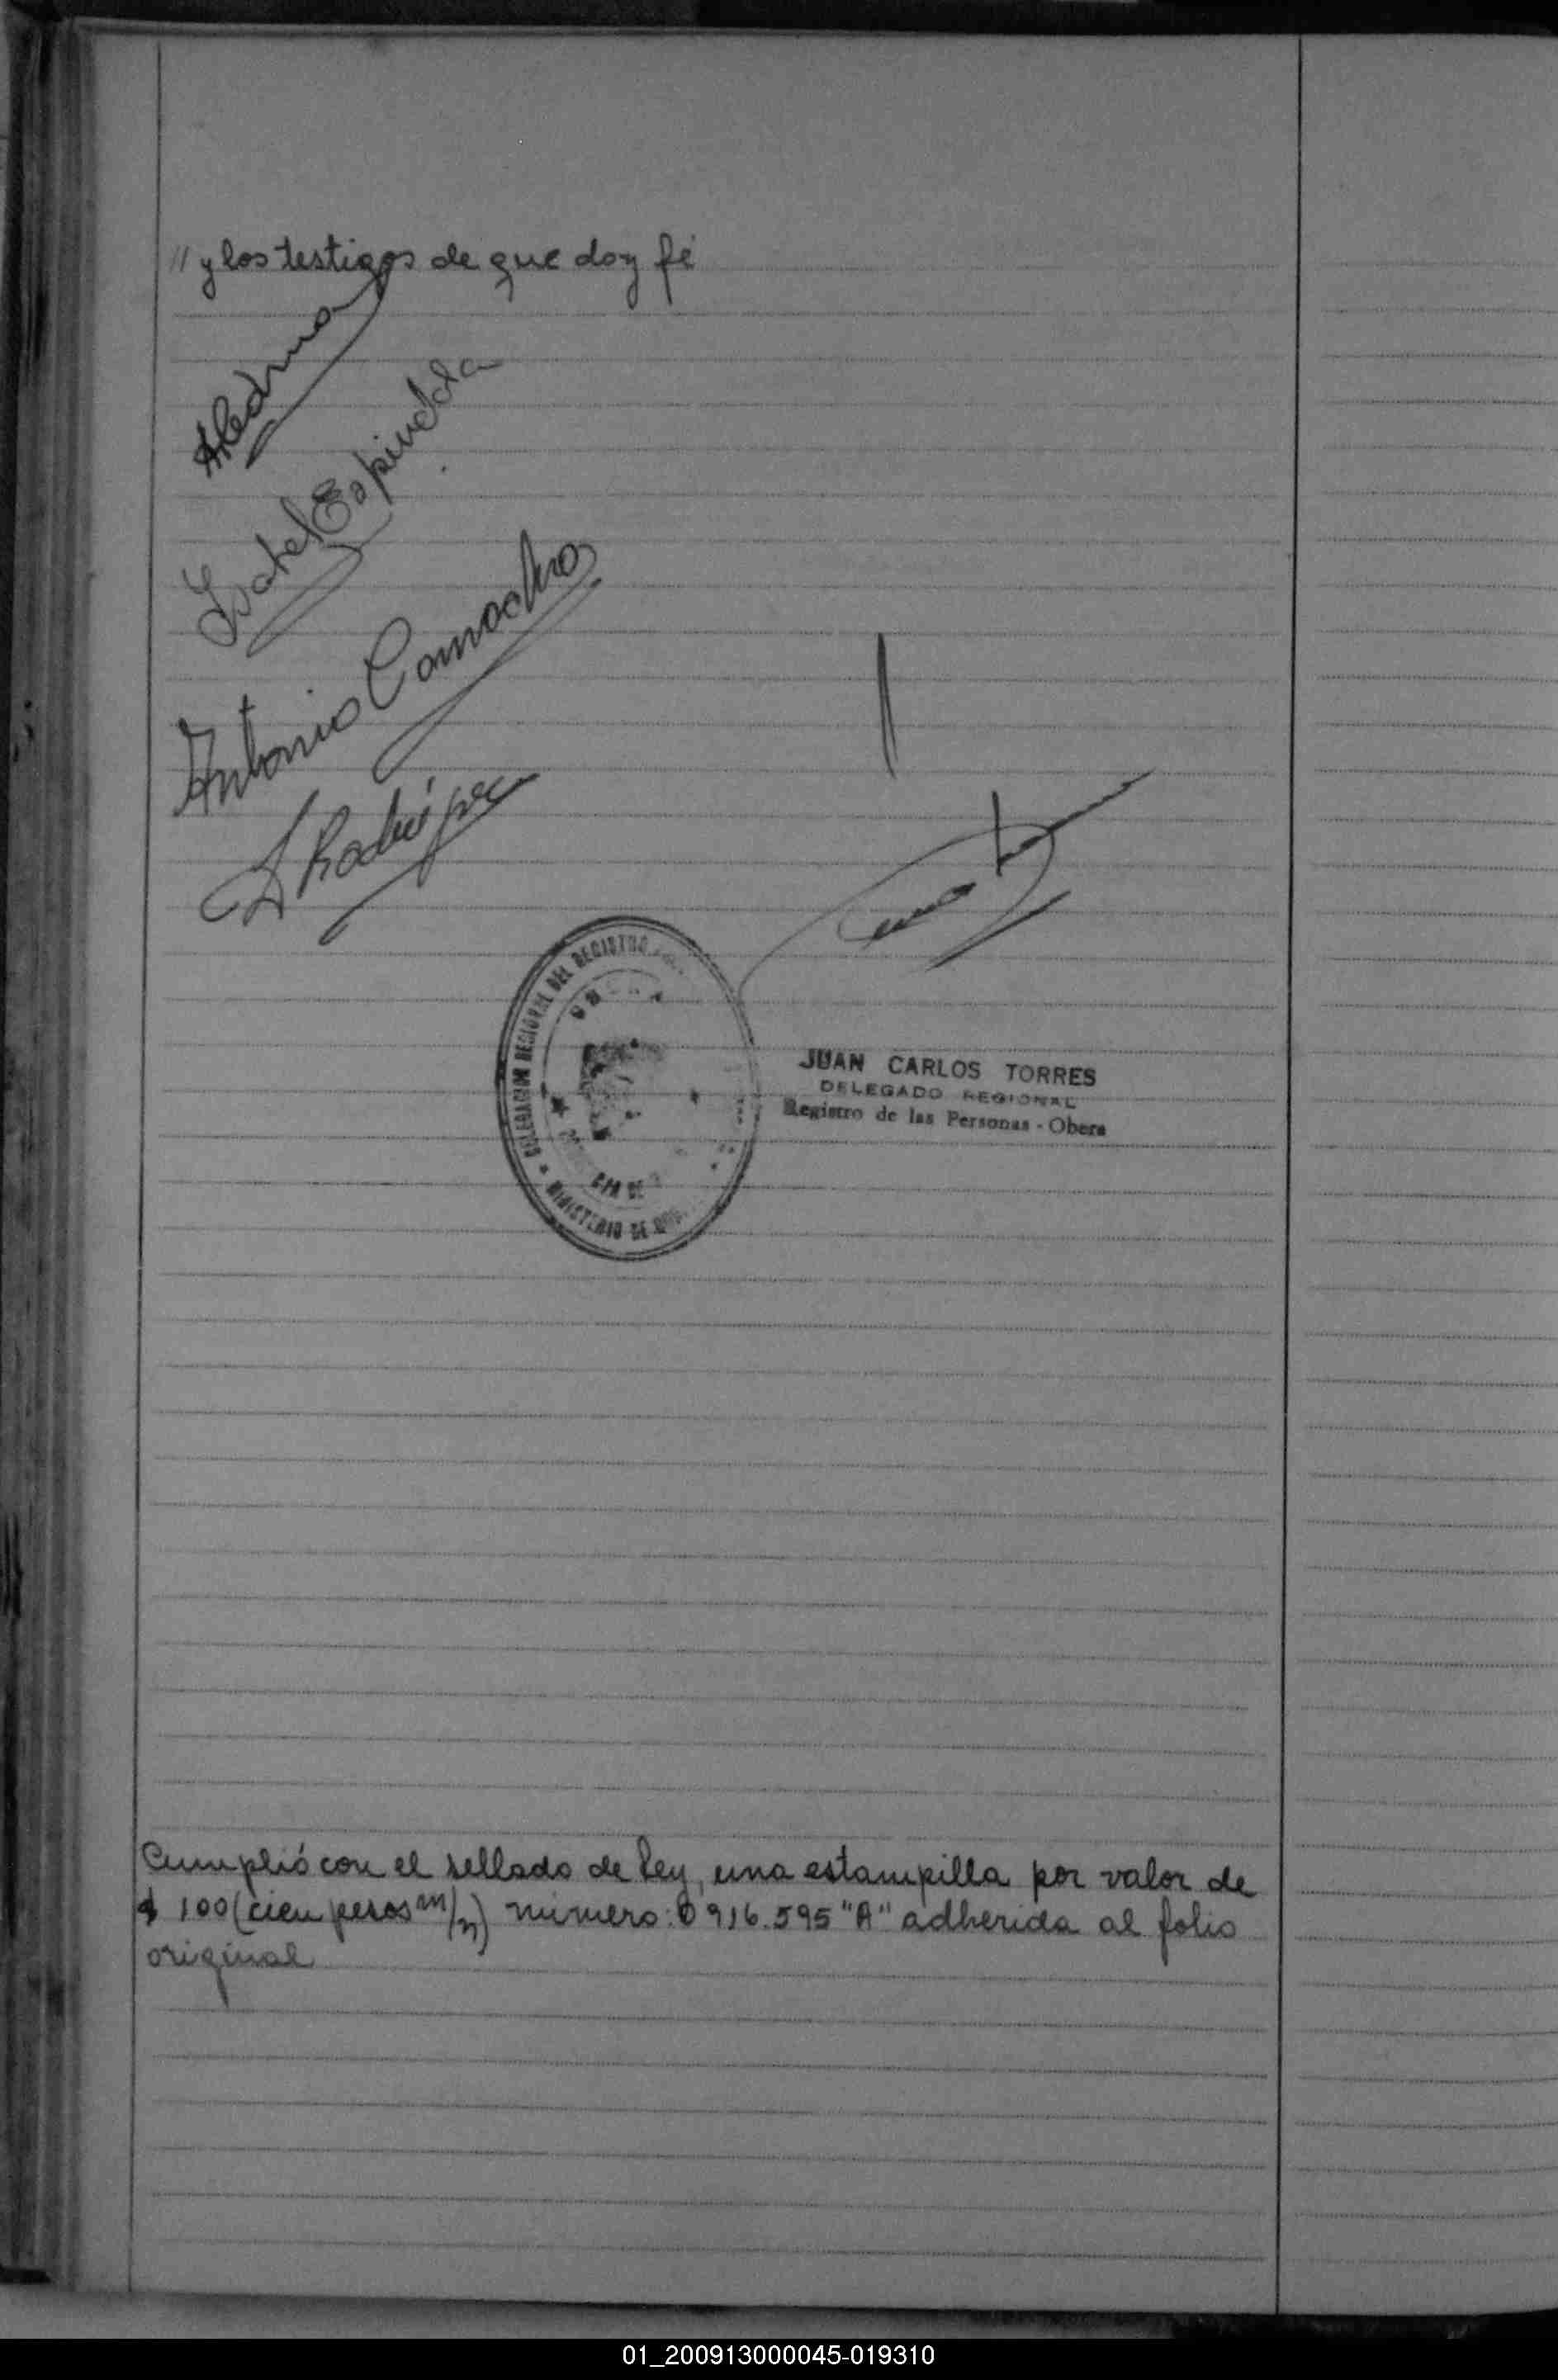 // y los testigos de que doy fé
Isabel Espindola
Antonio Camacho
Rodríguez
DELEGACION REGIONAL DEL REGISTRO
MINISTERIO DE
JUAN CARLOS TORRES
DELEGADO REGIONAL
Registro de las Personas - Obera
Cumplió con el sellado de ley, una estampilla por valor de
$ 100 (cien pesos m/n) número: 0916.595 "A" adherida al folio
original
01_200913000045-019310